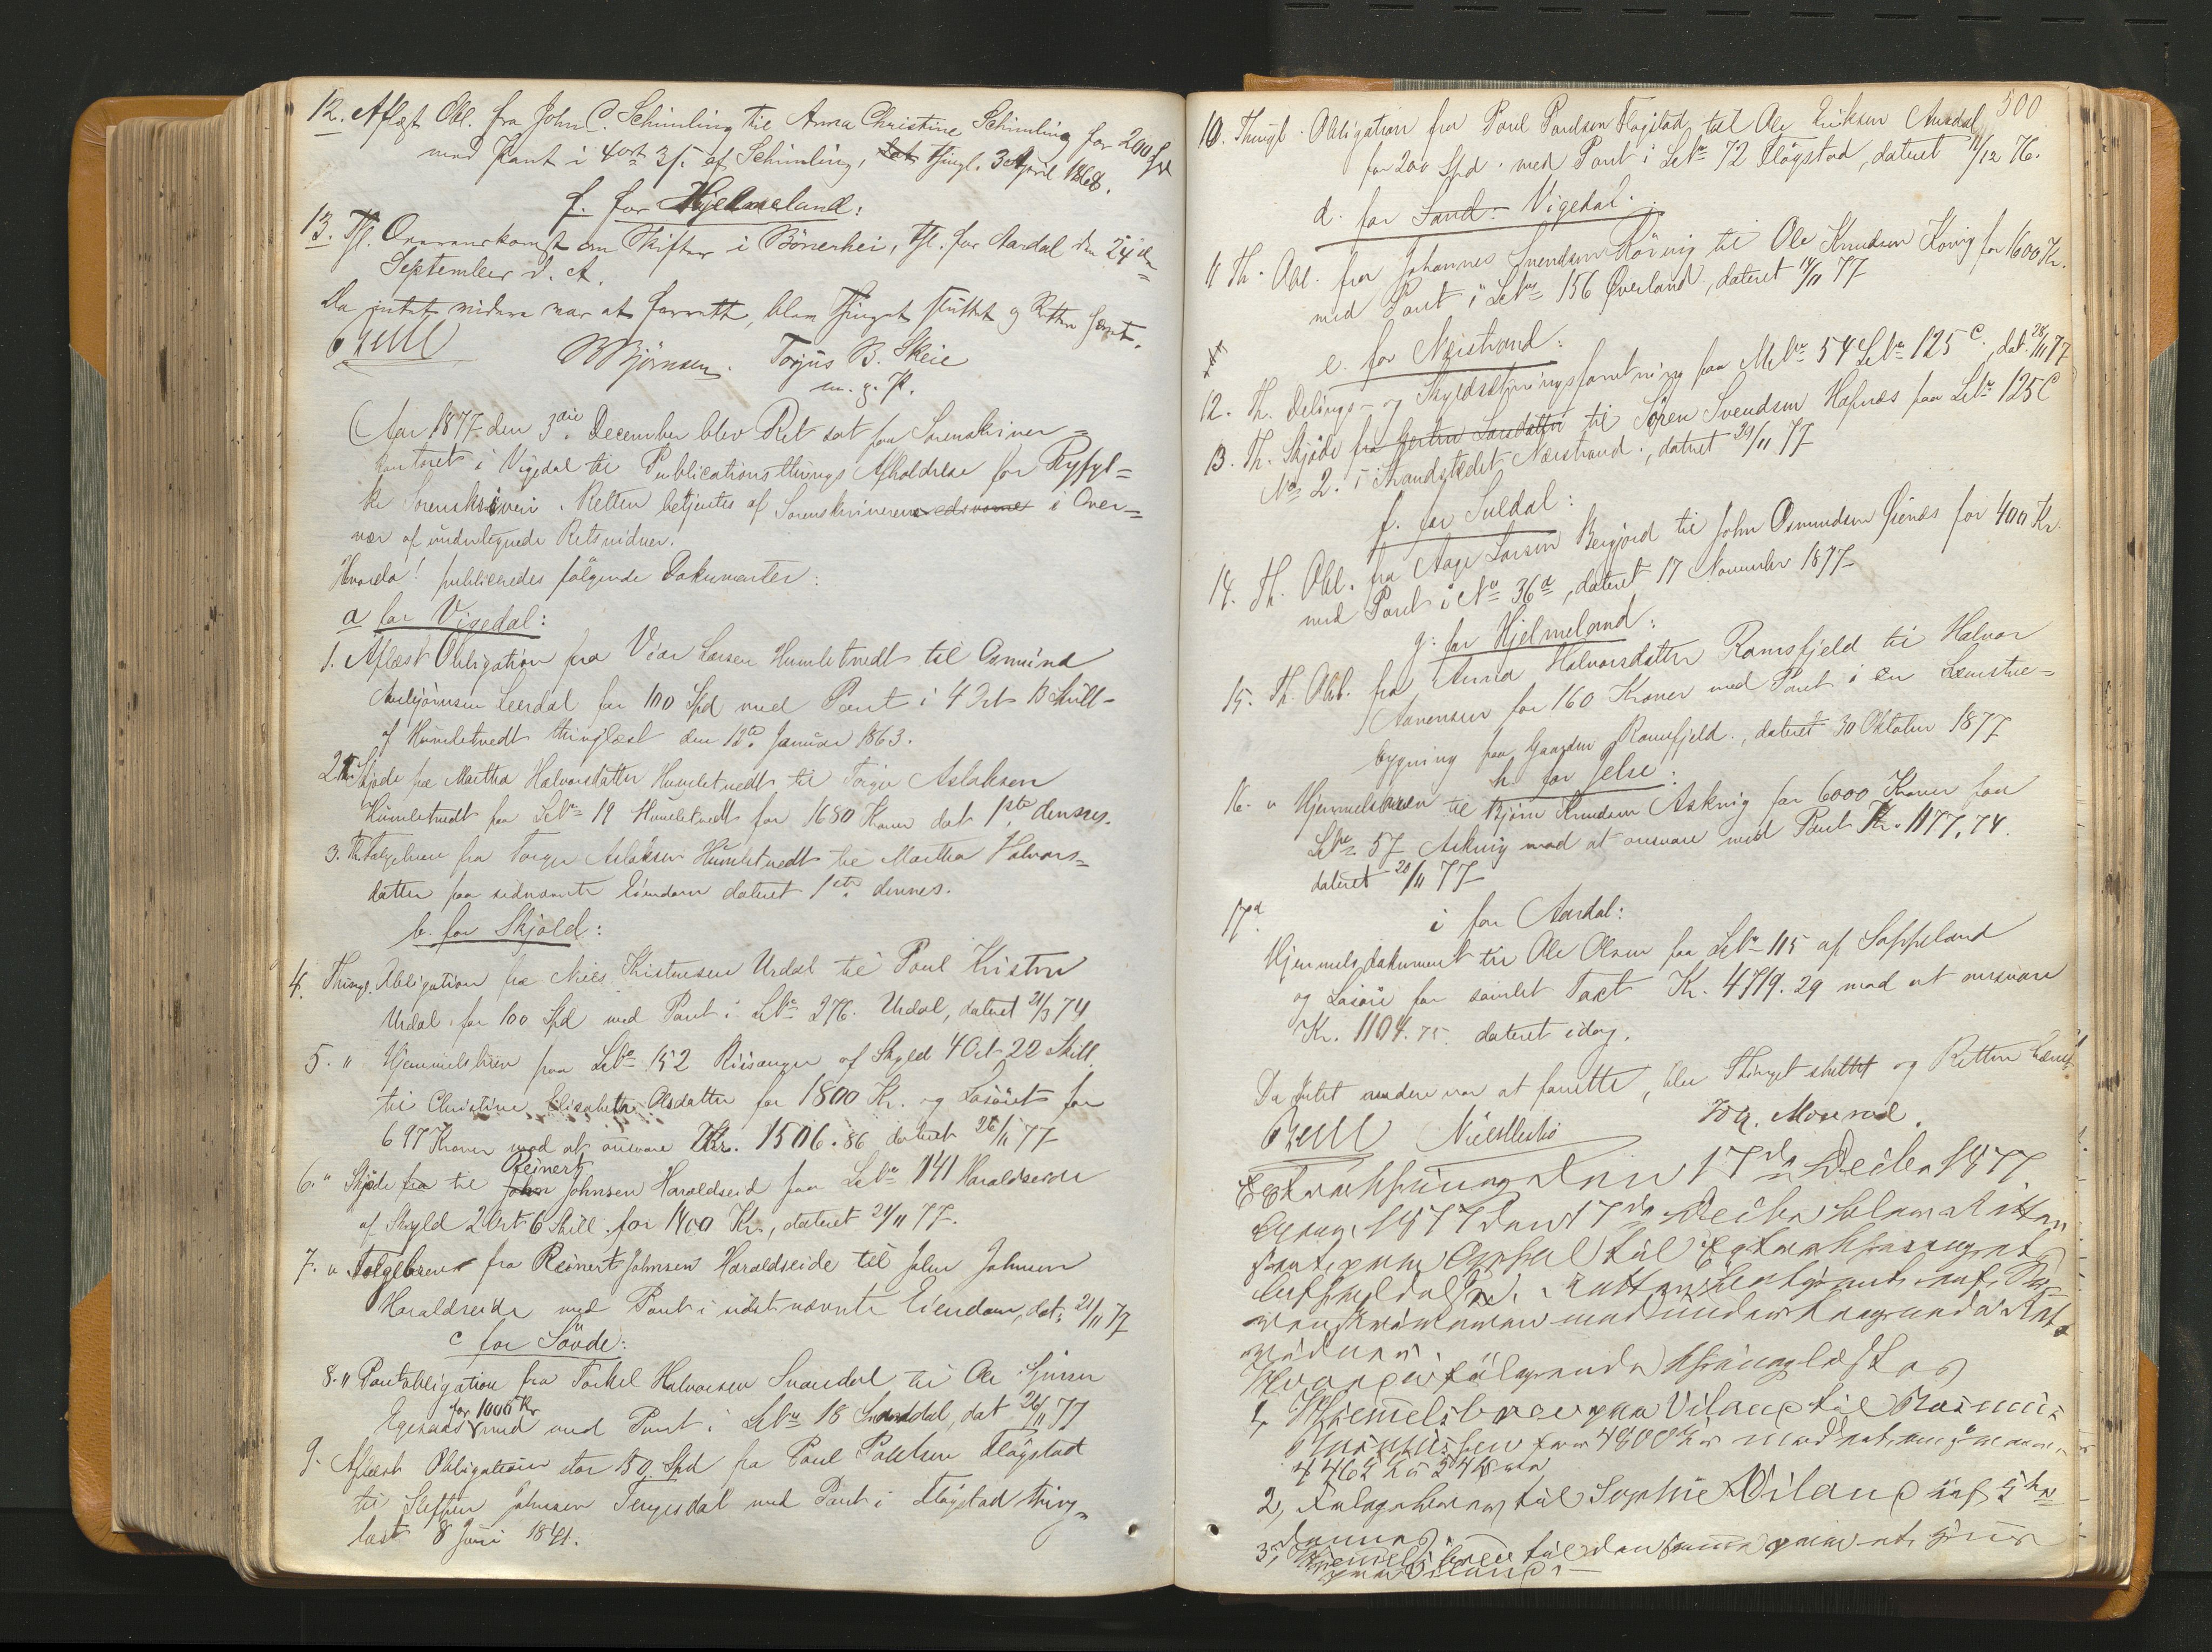 12. Aflæst Obl. fra John C. Schimling til Anna Christine Schimling for 200 Spd
med Pant i 4 ort 3 s. af Schimling, thingl. 3 April 1868.
f. for Hjelmeland:
13. Tgl. Overenskomst om Skifter i Börverhei, tgl. for Aardal den 24de
September d. A.
Da intet videre var at forrette, blev Thinget sluttet og Retten hævet.
BBjörnsen. Torjus B. Skeie
m. g. P.
Aar 1877 den 3die December blev Ret sat paa Sorenskriver=
kontoret i Vigedal til Publicationsthings Afholdelse for Ryfyl=
ke Sorenskriveri. Retten betjentes af Sorenskriveren edsvorne i Over=
vær af undertegnede Retsvidner.
Hvorda! publiceredes følgende Dokumenter:
a for Vigedal:
1. Aflæst Obligation fra Viar Larsen Humletvedt til Osmund
Leerdal for 100 Spd med Pant i 4 Ort 13 Skill-
af Humletvedt thinglæst den 13de Januar 1863.
2 Th. Skjøde fra Martha Halvorsdatter Humletvedt til Torger Aslaksen
Humletvedt paa Lbn 19 Humletvedt for 1680 Kroner dat 1ste dennes.
3. Th. Følgebrev fra Torger Aslaksen Humletvedt til Martha Halvors=
datter paa sidnævnte Eiendom dateret 1ste dennes.
b. for Skjold:
4. Thingl. Obligation fra Niels Kristensen Urdal til Poul Kristen
Urdal for 100 Spd med Pant i Lbn 276. Urdal, dateret 21/3 74
5. " Hjemmelsbrev paa Lbn 152 Riisanger af Skyld 4 Ort 22 Skill.
til Christine Elisabeth Olsdatter for 1800 Kr. og Løsöret for
697 Kroner mod at ansvare Kr. 1506.86 dateret 26/11 77
6. " Skjøde fra til John Reinert Johnsen Haraldseid paa Lbn 141 Haraldseide
af Skyld 2 Ort 6 Skill. for 1400 Kr, dateret 21/11 77.
7. " Følgebrev fra Reinert Johnsen Haraldseide til John Johnsen
Haraldseide med Pant i sidstnævnte Eiendom, dat: 21/11 77
c for Søvde:
8. " Pantobligation fra Torkel Halvorsen Svandal til Ole
for 1000 Kr
med Pant i Lbn 18 Svanddal, dat 26/11 77
9. Aflæst Obligation stor 50 Spd fra Poul Poulsen Flögstad
til Steffen Johnsen Tengesdal med Pant i Flögstad thing=
læst 8 Juni 1841.
500
10. Thingl. Obligation fra Poul Poulsen Flögstad til Ole Eriksen Aurdal
for 200 Spd. med Pant i Lbn 72 Flögstad, dateret 11/12 76.
d. for Sand: Vigedal.
11 Th. Obl. fra Johannes Svendsen Körnig til Ole Knudsen König for 1600 Kr.
med Pant i Lbn 156 Øverland, dateret 14/11 77
e. for Nærstrand:
12. Th. Delings- og Skyldsætningsforretning paa Mbn 54 Lbn 125 c. dat. 28/11 77
13. Th. Skjøde fra til Sören Svendsen Hapnæs paa Lbn 125 C
No 2. i Strandstedet Nærstrand., dateret 29/11 77
f. for Suldal:
14. Th. Obl. fra Aage Larsen Bergjord til John Osmundsen for 400 Kr.
med Pant i No 36 a, dateret 17 November 1877
g: for Hjelmeland:
15. Th. Obl. fra Anna Halvorsdatter Ramsfjeld til Halvor
Aanensen for 160 Kroner med Pant i en
bygning paa Gaarden Ramsfjeld., dateret 30 Oktober 1877
h. for Jelse:
16. " Hjemmelsbrev til Björn Knudsen Askvig for 6000 Kroner paa
Lbn 57 Askvig mod at ansvare med Pant Kr. 1177,74.
dateret 20/11 77
i for Aardal:
17.
Hjemmelsdokument til Ole Olsen paa Lbn 115 af Soppeland
og Løsöre for samlet Taxt Kr. 4719.29 mod at ansvare
Kr. 1104.75 dateret idag.
Da intet videre var at forrette, blev Thinget sluttet og Retten hævet
Monrad.
Extrathing den 17de Decbr 1877
1877 den 17de Decbr blev Retten
til Extrathingets
Retten betjentes af So=
renskriveren med undertegnede Rets
vidner.
Hvorpaa følgende thinglæstes
1, Hjemmelsbrev paa Viland til Rasmus
Rasmussen for 4800 Kr mod at ansvare
2, Følgebrev til Sophie Viland af 5te
dennes.
3, Hjemmelsbrev til den samme paa